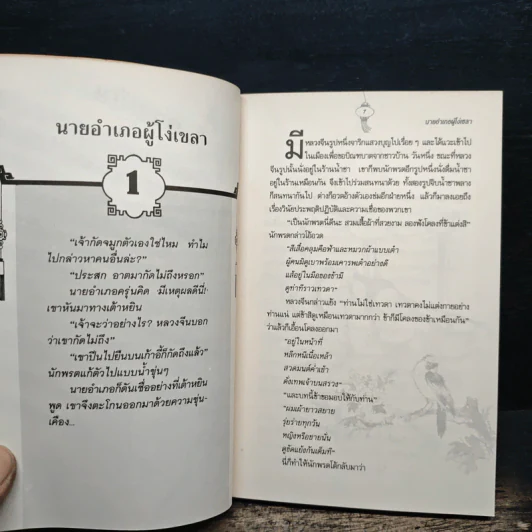 นายอำเภอผู้โง่เขลา
1
“เจ้ากัดจมูกตัวเองใช่ไหม ทำไม
ไปกล่าวหาคนอื่นล่ะ?”
“ประสก อาตมากัดไม่ถึงหรอก”
นายอำเภอครุ่นคิด มีเหตุผลดีนี่!
เขาหันมาทางเต้าหยิน
“เจ้าจะว่าอย่างไร? หลวงจีนบอก
ว่าเขากัดไม่ถึง”
“เขาปีนไปยืนบนเก้าอี้ก็กัดถึงแล้ว”
นักพรตแก้ตัวไปแบบน้ำขุ่นๆ
นายอำเภอก็ดันเชื่ออย่างที่เต้าหยิน
พูด เขาจึงตะโกนออกมาด้วยความขุ่น-
เคือง...
7
นายอำเภอผู้โง่เขลา
มีหลวงจีนรูปหนึ่งจาริกแสวงบุญไปเรื่อย ๆ และได้แวะเข้าไป
ในเมืองเพื่อขอบิณฑบาตจากชาวบ้าน วันหนึ่ง ขณะที่หลวง
จีนรูปนั้นนั่งอยู่ในร้านน้ำชา เขาก็พบนักพรตอีกรูปหนึ่งนั่งดื่มน้ำชา
อยู่ในร้านเหมือนกัน จึงเข้าไปร่วมสนทนาด้วย ทั้งสองรูปจิบน้ำชาพลาง
ก็สนทนากันไป ต่างก็อวดอ้างตัวเองข่มอีกฝ่ายหนึ่ง แล้วก็มาลงเอยถึง
เรื่องวินัยประพฤติปฏิบัติและความเชื่อของพวกเขา
“เป็นนักพรตนี่ดีนะ สวมเสื้อผ้าที่สวยงาม ลองฟังโคลงที่ข้าแต่งสิ”
นักพรตกล่าวโอ้อวด
“สีเสื้อคลุมคือฟ้าและหมวกผ้าแบบเต๋า
ผู้คนมีดูเบาพร้อมเคารพเต๋าอย่างดี
แล้อยู่ในมือของข้ามี
ดูท่าทีราวเทวดา”
หลวงจีนกล่าวแย้ง “ท่านไม่ใช่เทวดา เทวดาคงไม่แต่งกายอย่าง
ท่านแน่ แต่ข้าสิดูเหมือนเทวดามากกว่า ข้าก็มีโคลงของข้าเหมือนกัน”
ว่าแล้วก็เอื้อนโคลงออกมา
“อยู่ในหน้าที่
หลีกหนีเนื้อเหล้า
สวดมนต์ค่ำเช้า
ดั่งเทพเจ้าบนสรวง”
“และบทนี้ข้าขอมอบให้กับท่าน”
“ผมเผ้ายาวสยาย
วุ่นวายทุกวัน
หญิงหรือชายนั่น
ดูขัดแย้งกันเต็มที-”
นี่ก็ทำให้นักพรตโต้กลับมาว่า